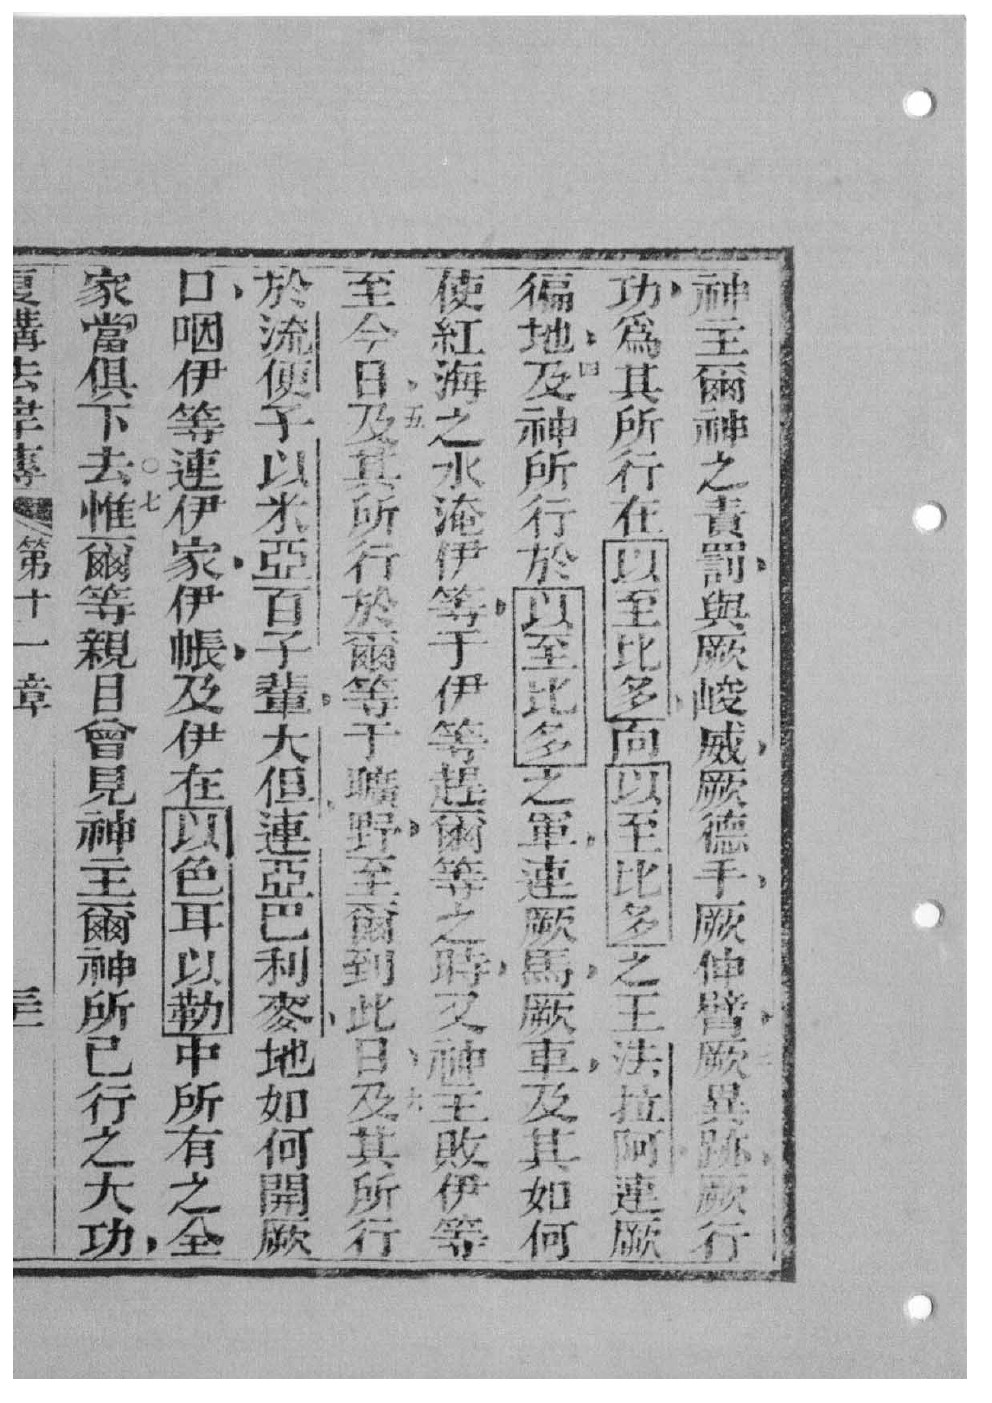 神主爾神之責罰與厥峻威厥德手厥伸臂厥異跡厥行
功爲其所行在以至比多向以至比多之王法拉阿連厥
徧地四及神所行於以至比多之軍連厥馬厥車及其如何
使紅海之水淹伊等于伊等趕爾等之時又神主敗伊等
至今日五及其所行於爾等于曠野至爾到此日六及其所行
於流便子以米亞百子輩大但連亞巴利麥地如何開厥
口咽伊等連伊家伊帳及伊在以色耳以勒中所有之全
家當俱下去○七惟爾等親目曾見神主爾神所已行之大功
復講法律傳 第十一章 三二